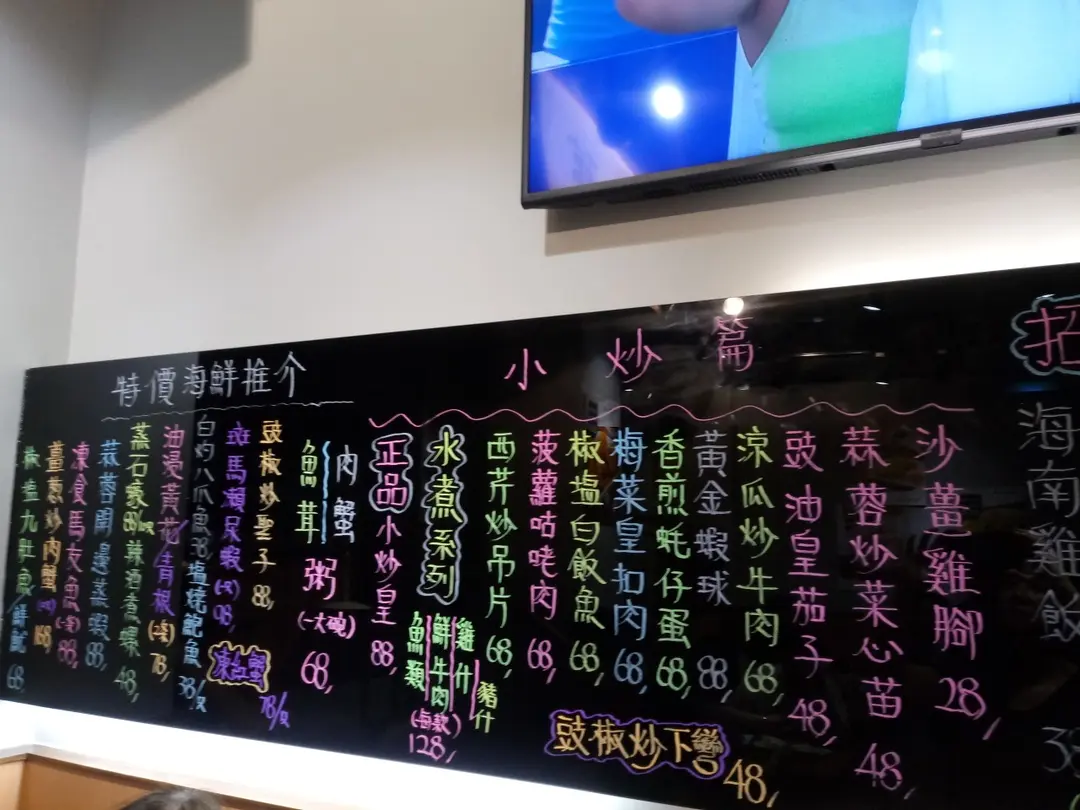 特價海鮮推介
小炒篇
招
海南雞飯
38
沙薑雞腳 28,
蒜蓉炒菜心苗 48,
豉油皇茄子 48,
涼瓜炒牛肉 68,
黃金蝦球 88,
香煎蚝仔蛋 68,
梅菜皇扣肉 68,
椒塩白飯魚 68,
菠蘿咕咾肉 68,
西芹炒吊片 68,
豉椒炒下彎 48,
水煮系列
雞什
豬什
鮮牛肉
魚類
(每款)
128,
正品小炒皇 88,
肉蟹
魚茸
粥
(一大碗)
68,
豉椒炒聖子 88,
斑馬瀨尿蝦 (大) 98,
凍紅蟹
78/只
白灼八爪魚 38,
塩燒鮑魚 38/只
油浸黃花
青根
(一条)
78,
蒸石蠔 88
辣酒煮螺 48,
蒜蓉開邊蒸蝦 88,
凍食馬友魚 (一条) 88,
薑葱炒肉蟹 168
椒塩九肚魚 68
鮮魷